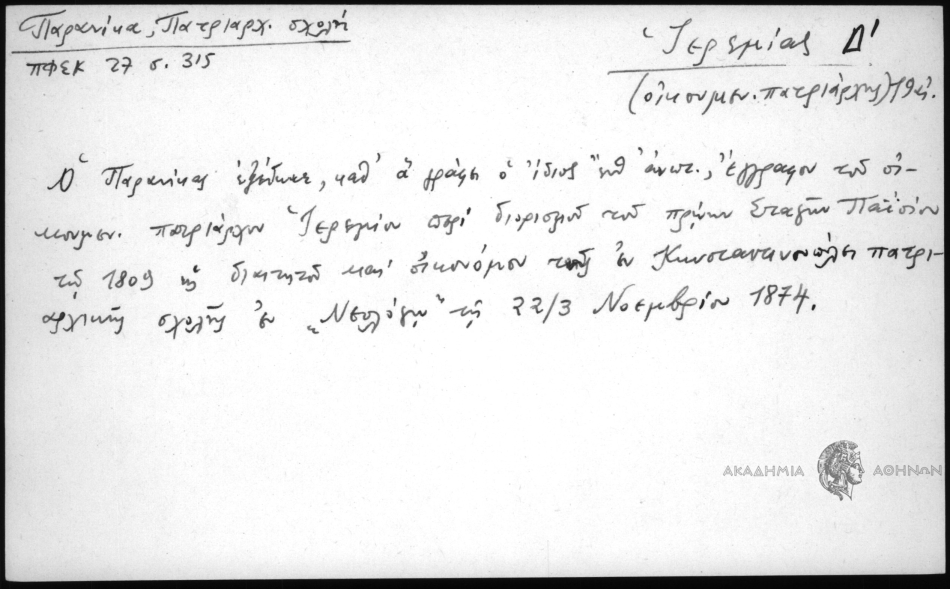 Παρανίκα, Πατριαρχ. σχολή
ΠΦΣΚ 27 σ. 315
Ἱερεμίας Δ'
(οἰκουμεν. πατριάρχης) 19 αἰ.
Ὁ Παρανίκας ἐξέδωκε, καθ' ἃ γράφει ὁ ἴδιος ἔνθ' ἀνωτ., ἔγγραφον τοῦ οἰ-
κουμεν. πατριάρχου Ἱερεμίου περὶ διορισμοῦ τοῦ πρώην Σταγῶν Παϊσίου
τῷ 1809 ὡς διευθυντοῦ καὶ οἰκονόμου τῆς ἐν Κωνσταντινουπόλει πατρι-
αρχικῆς σχολῆς ἐν „Νεολόγῳ" τῇ 22/3 Νοεμβρίου 1874.
ΑΚΑΔΗΜΙΑ ΑΘΗΝΩΝ